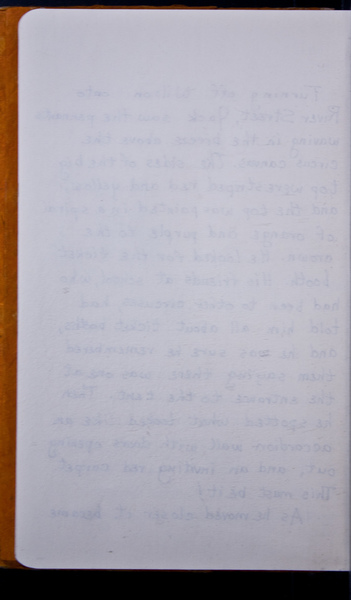 Turning off Wilson onto
River Street, Jack saw the pennants
waving in the breeze above the
circus canvas. The sides of the big
top were striped red and yellow,
and the top was painted in a spiral
of orange and purple to the
crown. He looked for the ticket
booth. His friends at school who
had been to other circuses had
told him all about ticket booths,
and he was sure he remembered
them saying there was one at
the entrance to the tent. Then
he spotted what looked like an
accordion wall with doors opening
out, and an inviting red carpet.
This must be it!
As he moved closer it became